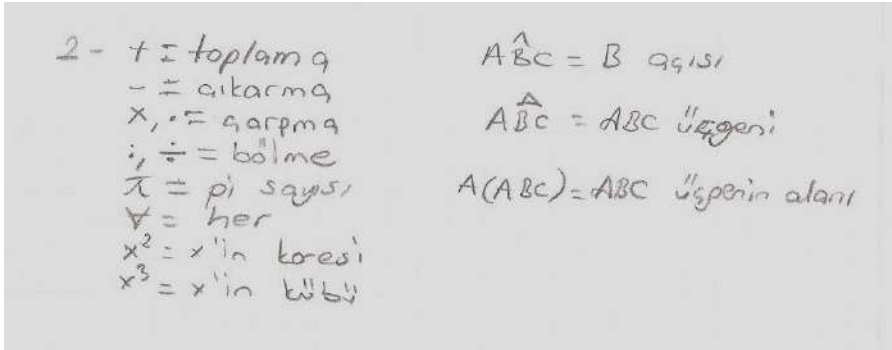 2- + = toplama
- = çıkarma
x, · = çarpma
:, ÷ = bölme
π = pi sayısı
∀ = her
x² = x'in karesi
x³ = x'in kübü
AB̂C = B açısı
AB̂C = ABC üçgeni
A(ABC) = ABC üçgenin alanı